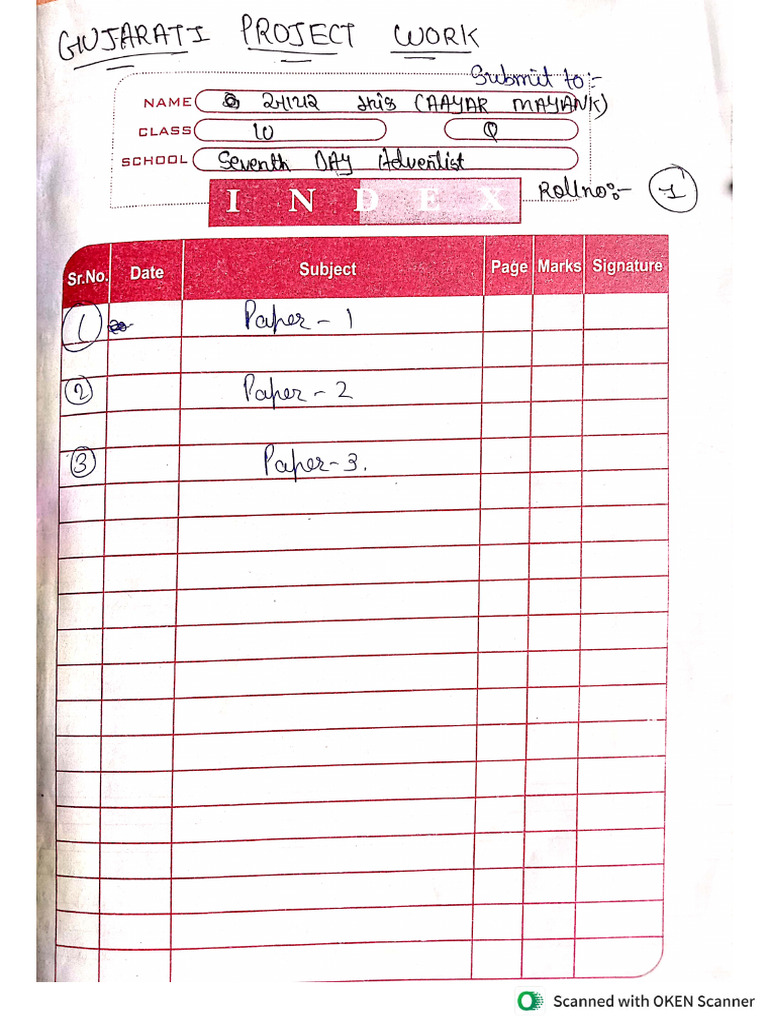 GUJARATI PROJECT WORK
Submit to:-
NAME (AAYAR MAYANK)
CLASS 10 Q
SCHOOL Seventh DAY Adventist
INDEX
Rollno:- 1
Sr.No. Date Subject Page Marks Signature
1 Paper - 1
2 Paper - 2
3 Paper - 3.
Scanned with OKEN Scanner